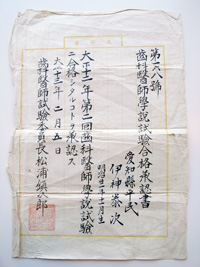 第二八號
齒科醫師學說試驗合格承認書
愛知縣平民
伊神崇次
明治廿一年十二月生
大正十二年第二回齒科醫師學說試驗
ニ合格シタルコトヲ承認ス
大正十三年二月五日
齒科醫師試驗委員長松浦鎮次郎